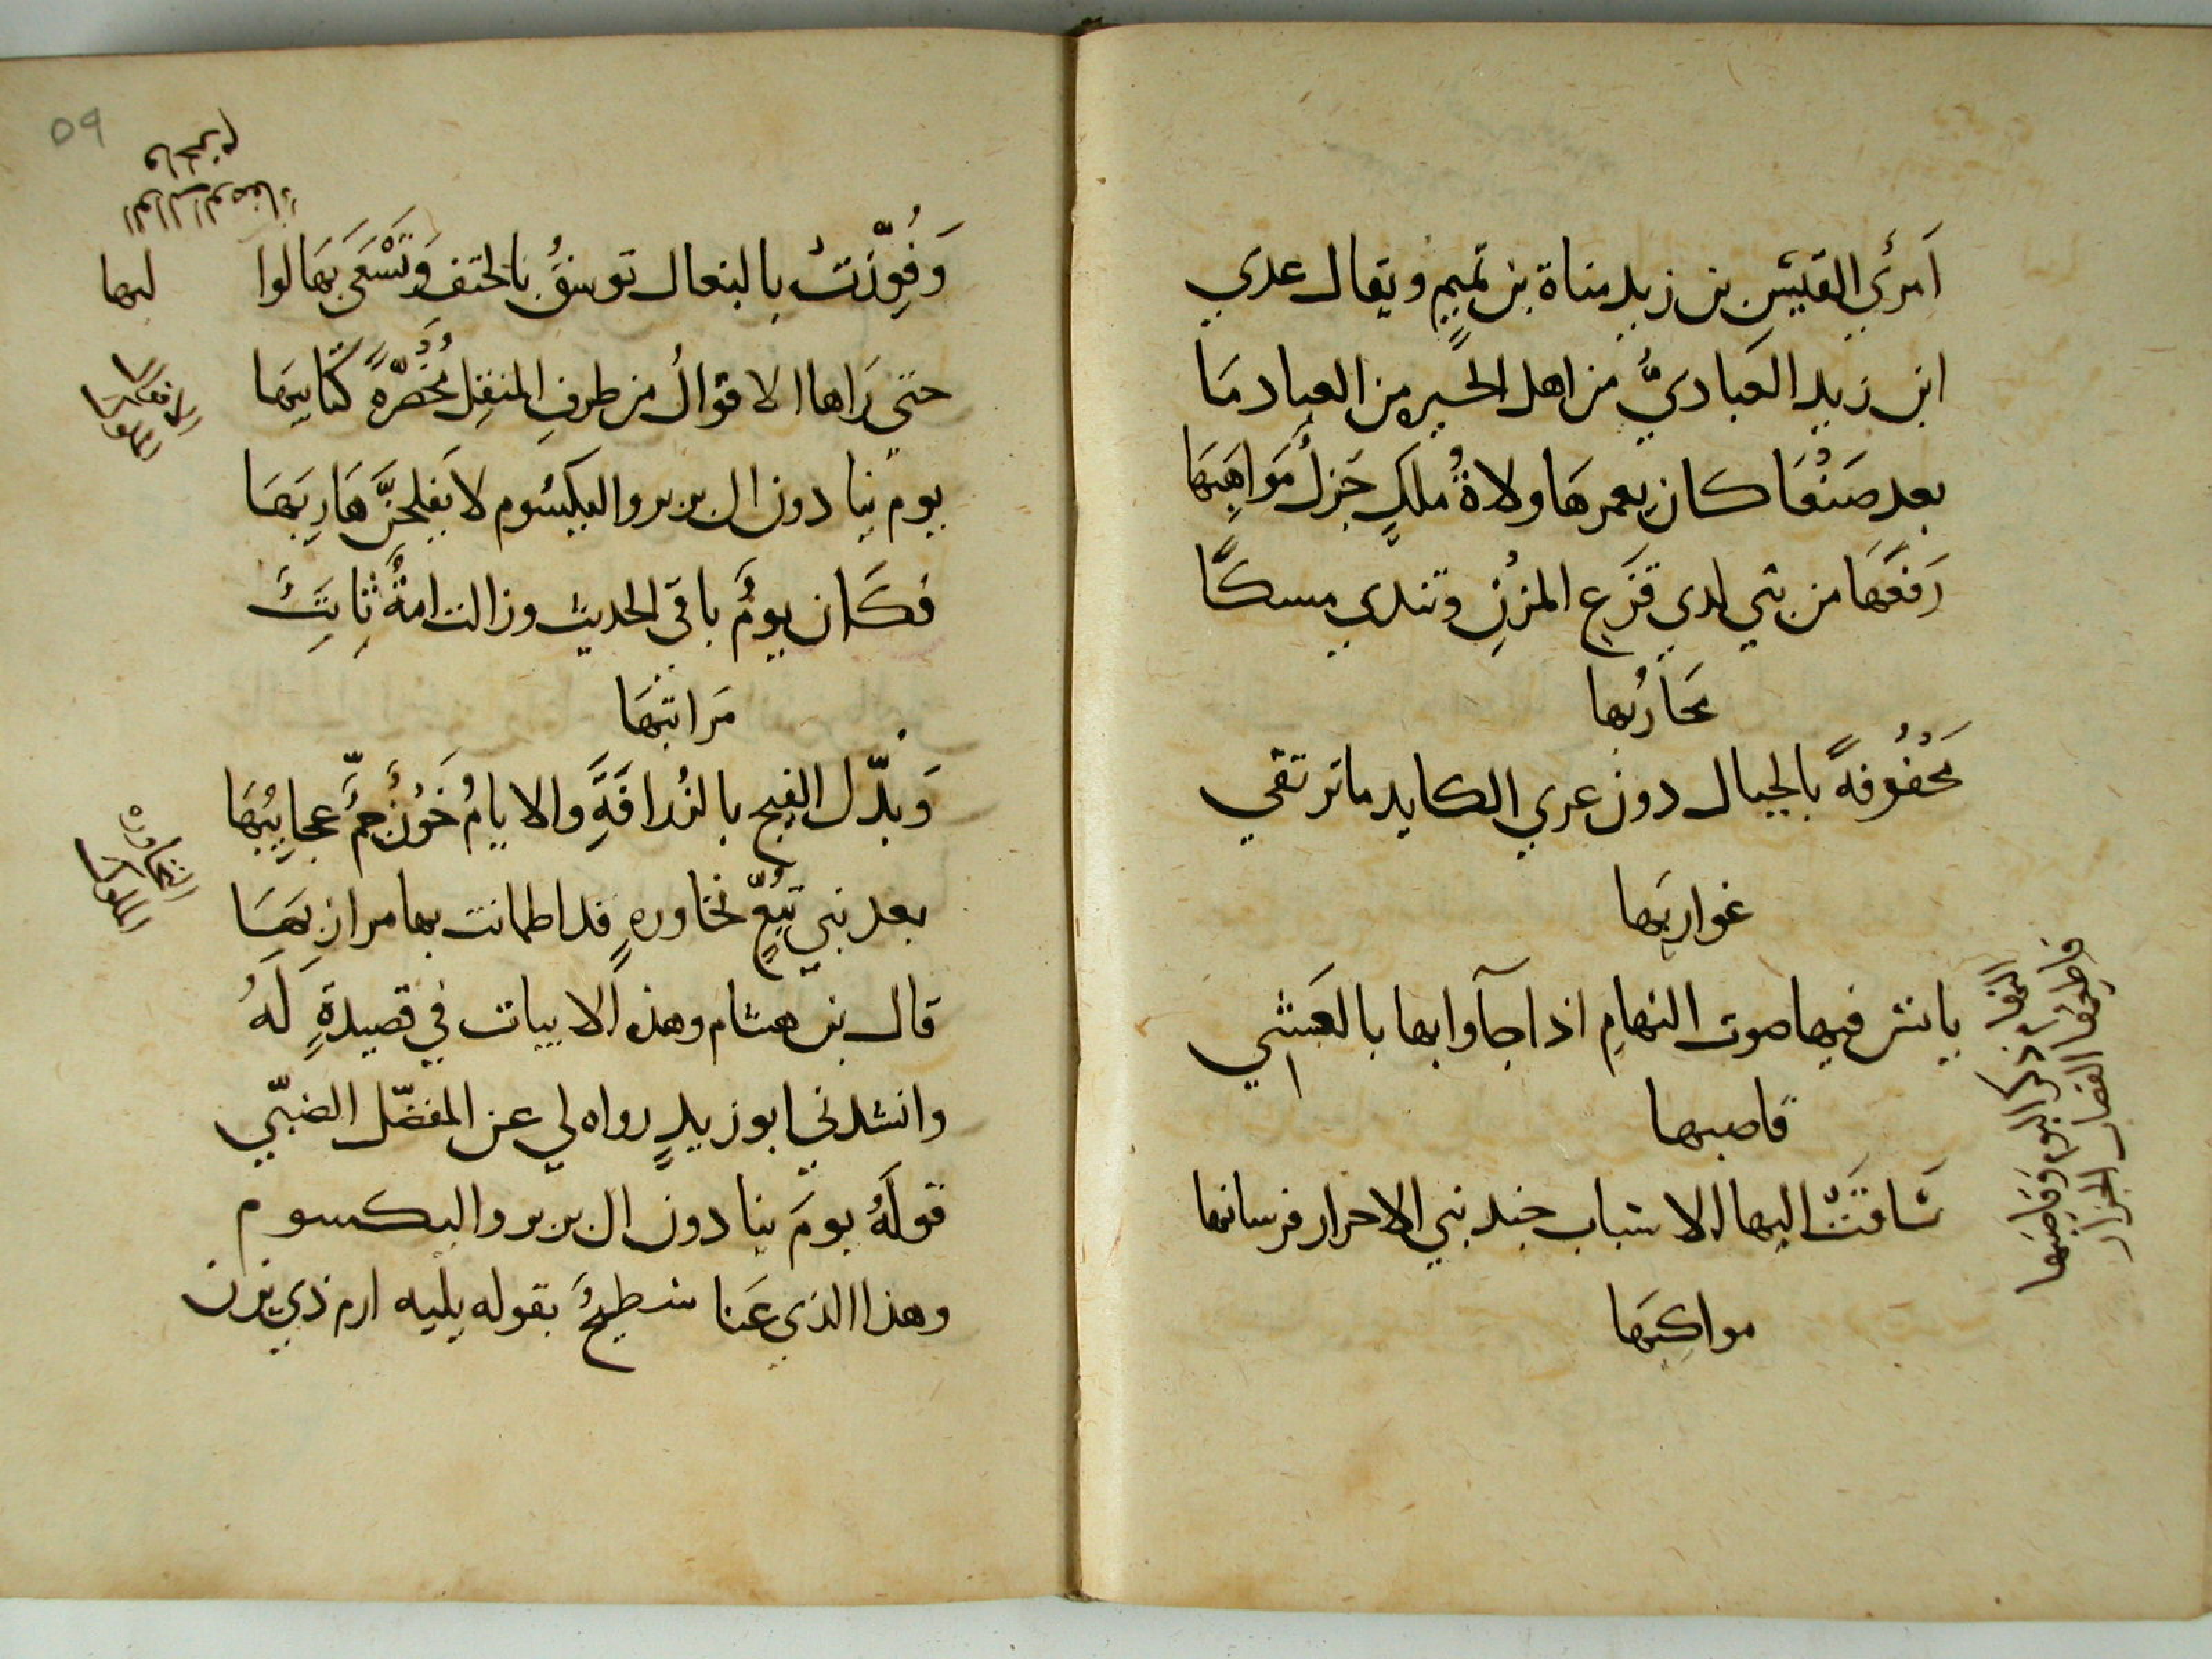 اَمرئِ القَيْسِ بن زيد مناة بن تميمٍ ويقال عدي
ابن زيد العِباديُّ من اهل الحِيره من العباد مَا
بعد صَنْعَا كان يعمرهَا ولاةُ ملكٍ جَزلٌ مَوَاهِبَهَا
رَفعَهَا من بني لدي قَزَعِ المزْنِ وتندي مسكًا
محَارُبها
مَحْفُوفهً بالجبال دون عري الكايد ماترتقي
غواربهَا
يانس فيها صوت النهامِ اذا جآوابها بالعَشِيِ
قاصبها
سَاقَتْ اليها الاسباب جند بني الاحرار فرسانها
مواكبهَا
النهام ذكر البوم وقاصبها
قاطعها القصاب الجزار
وَفُوِّزَتْ بالبغال توسقُ بالحتف وَتَسْعَي بهَا توا
لبها
حتي رَاها الاقوالُ من طرفِ المنقلِ مُخْضَرّهً كتايبهَا
يوم ينادون ال بربر واليكسوم لا يفلحنَّ هَاربهَا
فكَان يومٌ باقي الحديث وزالت امةٌ ثابتٌ
مَراتبهَا
وَبدّل الفيج بالزُرافَةِ والايامُ خُونٌ جمٌ عجايبُهَا
بعد بني تُبّعٍ نخاورهٍ قد اطمانت بها مرازبهَا
قال بن هشام وهذه الابيات في قصيدةٍ لَهُ
وانشدني ابو زيدٍ رواه لي عن المفضّل الضبّي
قولَهُ يومَ ينادون ال بربر واليكسوم
وهذا الذي عَنا سطيحٌ بقوله يليه ارم ذي يزن